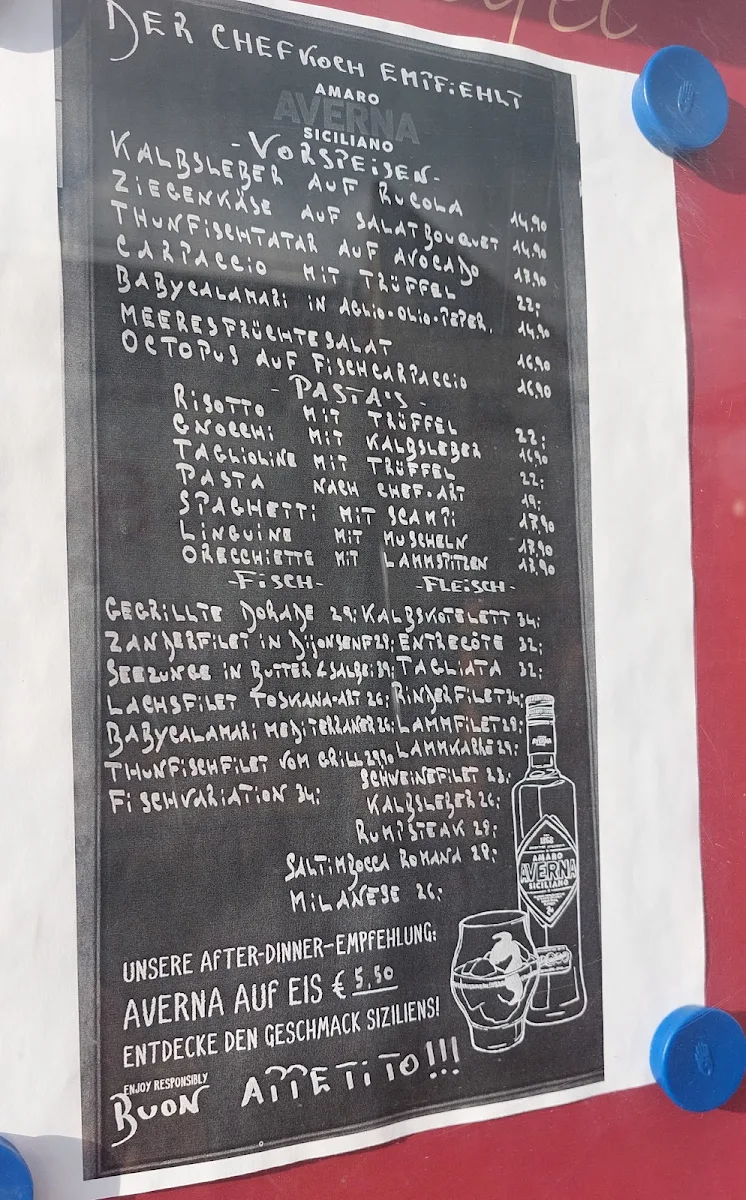 DER CHEFKOCH EMPFiEHLT
AMARO
AVERNA
SICILIANO
-VORSPEISEN-
KALBSLEBER AUF RUCOLA 14,90
ZIEGENKÄSE AUF SALATBOUQUET 14,90
THUNFISCHTATAR AUF AVOCADO 17,90
CARPACCIO MIT TRÜFFEL 22,-
BABYCALAMARI IN AGLIO-OLIO-PEPER. 14,90
MEERESFRÜCHTESALAT 16,90
OCTOPUS AUF FISCHCARPACCIO 16,90
-PASTA'S-
RISOTTO MIT TRÜFFEL 22,-
GNOCCHI MIT KALBSLEBER 16,90
TAGLIOLINE MIT TRÜFFEL 22,-
PASTA NACH CHEF-ART 19,-
SPAGHETTI MIT SCAMPI 17,90
LINGUINE MIT MUSCHELN 17,90
ORECCHIETTE MIT LAMMSPITZEN 17,90
-FISCH- -FLEISCH-
GEGRILLTE DORADE 29,- KALBSKOTELETT 34,-
ZANDERFILET IN DIJONSENF 29,- ENTRECÔTE 32,-
SEEZUNGE IN BUTTER & SALBEI 39,- TAGLIATA 32,-
LACHSFILET TOSKANA-ART 26,- RINDERFILET 34,-
BABYCALAMARI MEDITERRANER 26,- LAMMFILET 28,-
THUNFISCHFILET VOM GRILL 29,90 LAMMKARRE 29,-
SCHWEINEFILET 23,-
FISCHVARIATION 34,- KALBSLEBER 26,-
RUMPSTEAK 29,-
SALTIMBOCCA ROMANA 28,-
MILANESE 26,-
AMARO
AVERNA
SICILIANO
UNSERE AFTER-DINNER-EMPFEHLUNG:
AVERNA AUF EIS € 5,50
ENTDECKE DEN GESCHMACK SIZILIENS!
ENJOY RESPONSIBLY
BUON APPETITO!!!